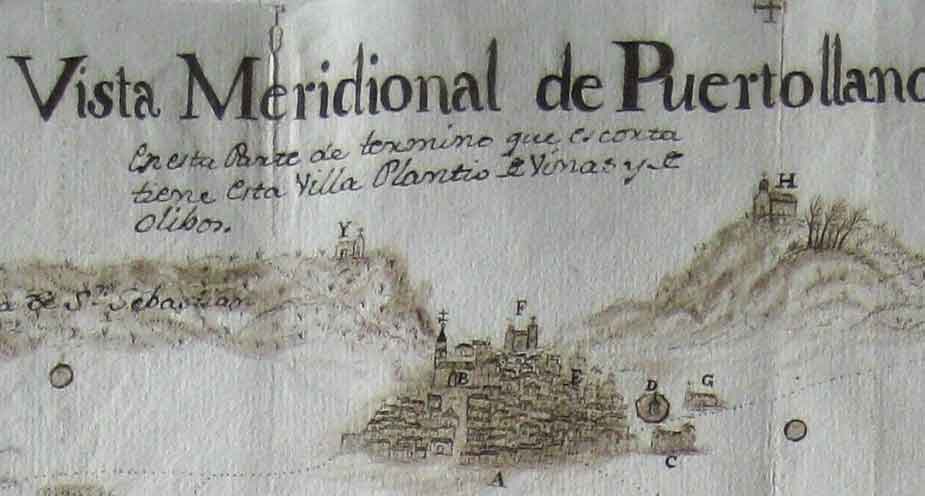 Vista Meridional de Puertollano
En esta Parte de termino que es corta
tiene esta Villa Plantio de Viñas y de
olibos.
Y
H
a de Sn. Sebastian
F
B
E
D
G
C
A